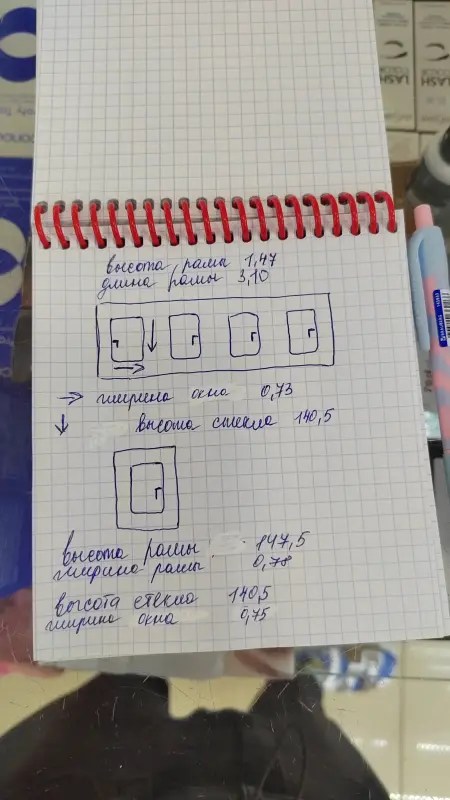 LASH
COLOR
LASH
COLOR
высота рамы 1,47
длина рамы 3,10
→ ширина окна 0,73
↓ высота стекла 140,5
высота рамы 147,5
ширина рамы 0,78
высота стекла 140,5
ширина окна 0,75